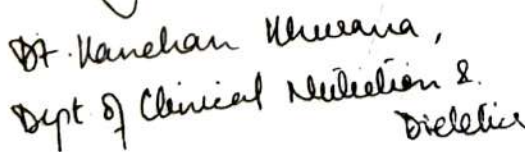 Dt. Kanchan Khurana,
Dept of Clinical Nutrition &
Dietetics